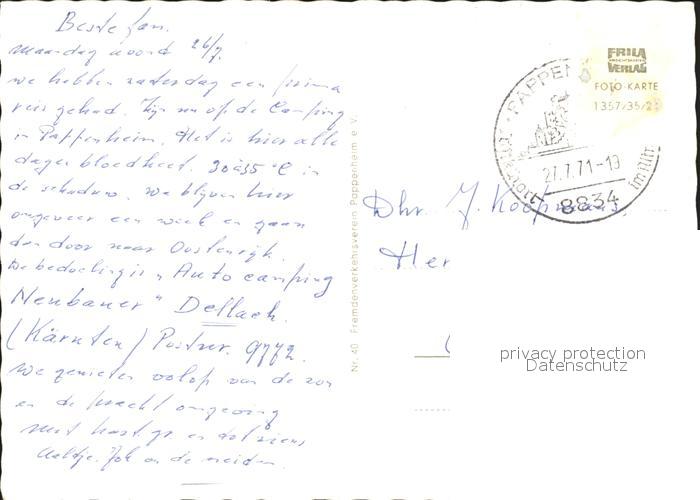 Beste Jan.
Maandag avond 26/7.
we hebben zaterdag een prima
reis gehad. Zijn nu op de Camping
in Pappenheim. Het is hier alle
dagen bloedheet. 30 à 35 °C in
de schaduw. We blijven hier
ongeveer een week en gaan
dan door naar Oostenrijk.
De bedoeling is "Auto camping
Neubauer" Dellach.
(Kärnten) Postnr. 9772.
We genieten volop van de zon
en de pracht omgeving
Met hart. gr. en tot ziens
en de meiden.
Nr. 40 Fremdenverkehrsverein Pappenheim e.V.
FRILA
VERLAG
FOTO-KARTE
1357/35/2
PAPPEN
27.7.71-19
8834
Luftkurort
im Altm
Dhr. J. Koopmans
Her
privacy protection
Datenschutz